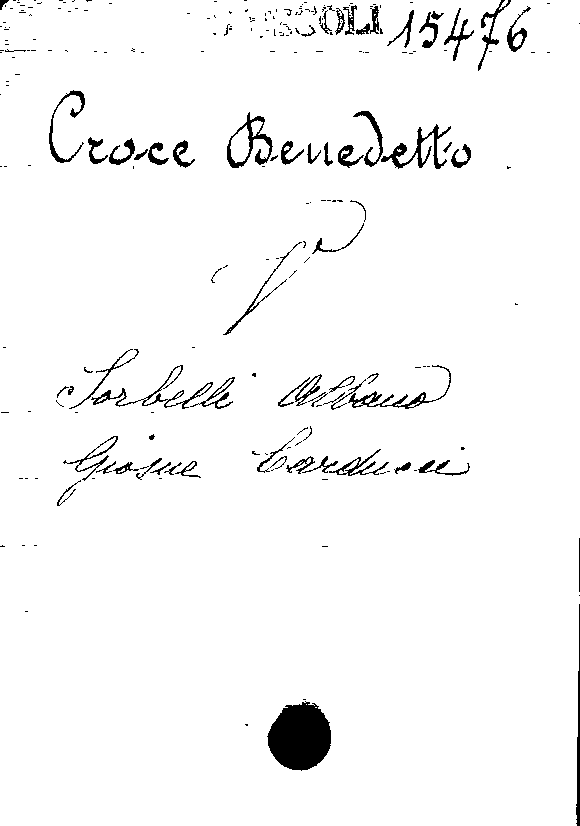 15476
Croce Benedetto
V
Sorbelli Albano
Giosue Carducci